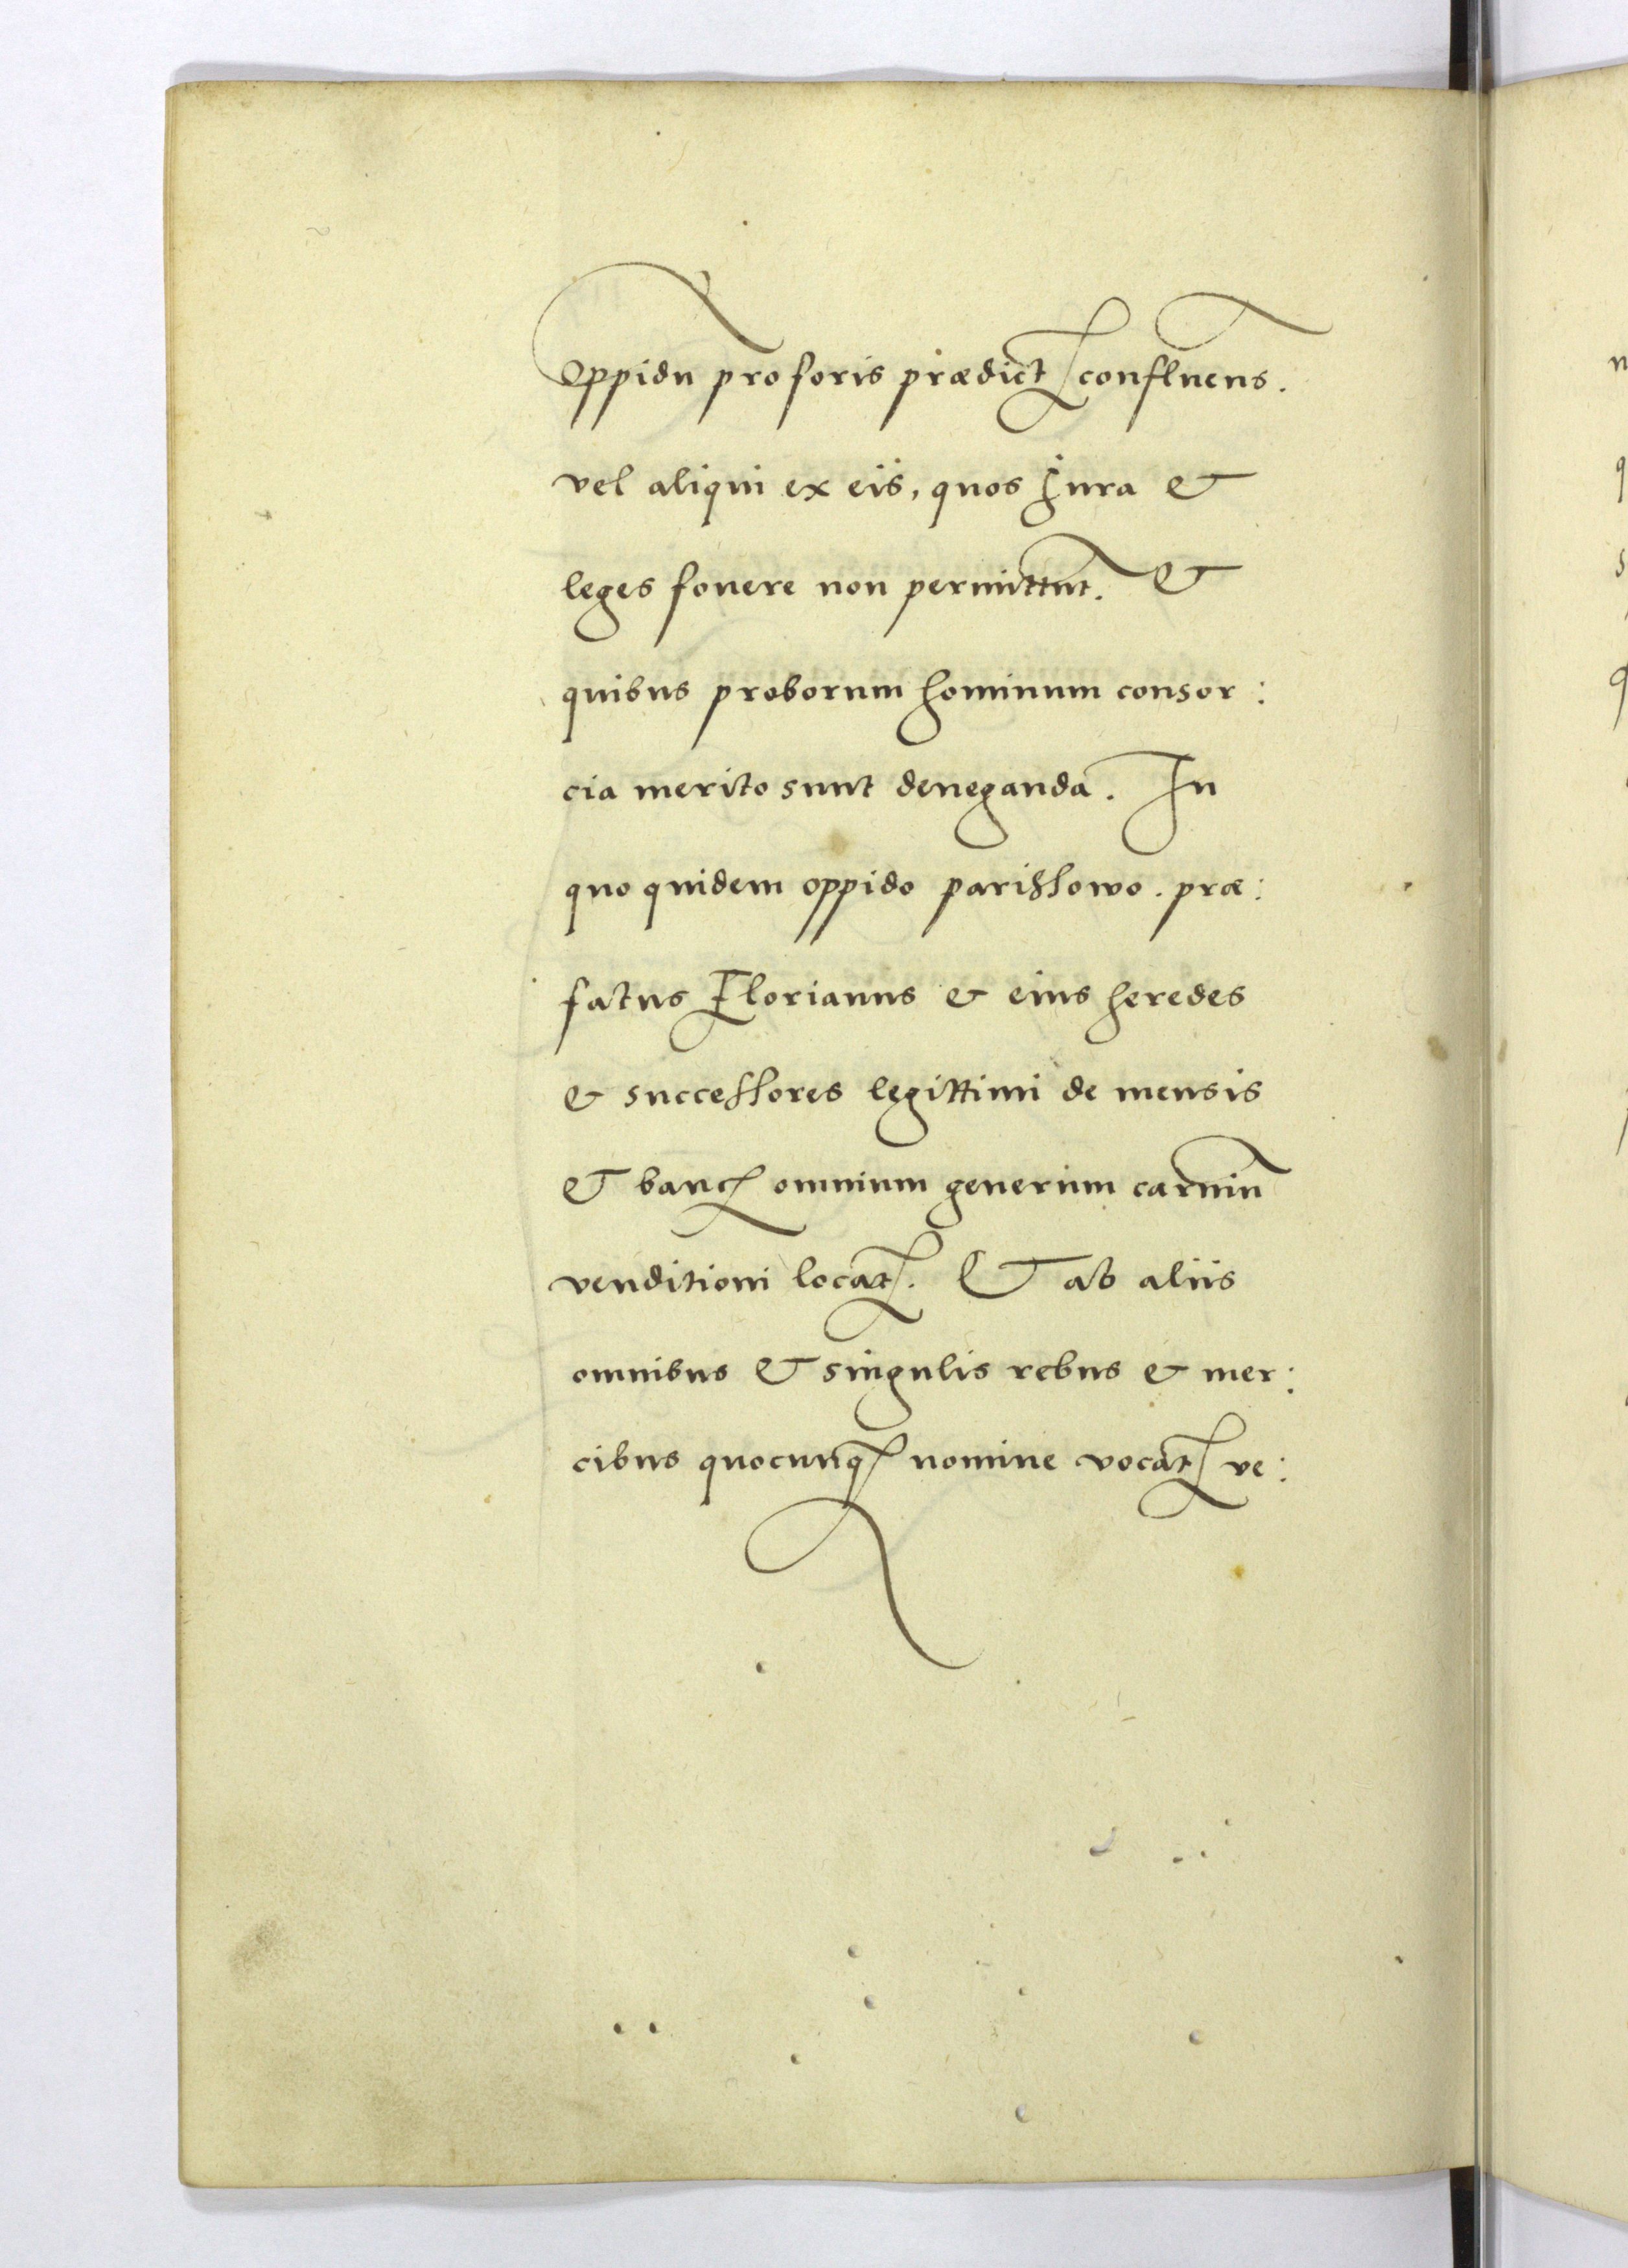 Oppidū pro foris prædictꝭ confluēns.
vel aliqui ex eis, quos Jura &
leges fouere non permittūt. &
quibus proborum hominum consor:
cia merito sunt deneganda. In
quo quidem oppido parissowo. præ:
fatus Florianus & eius heredes
& successores legittimi de mensis
& bancꝭ omnium generium carniū
venditioni locatꝭ. & ab aliis
omnibus & singulis rebus & mer:
cibus quocunqꝫ nomine vocatꝭ ve: